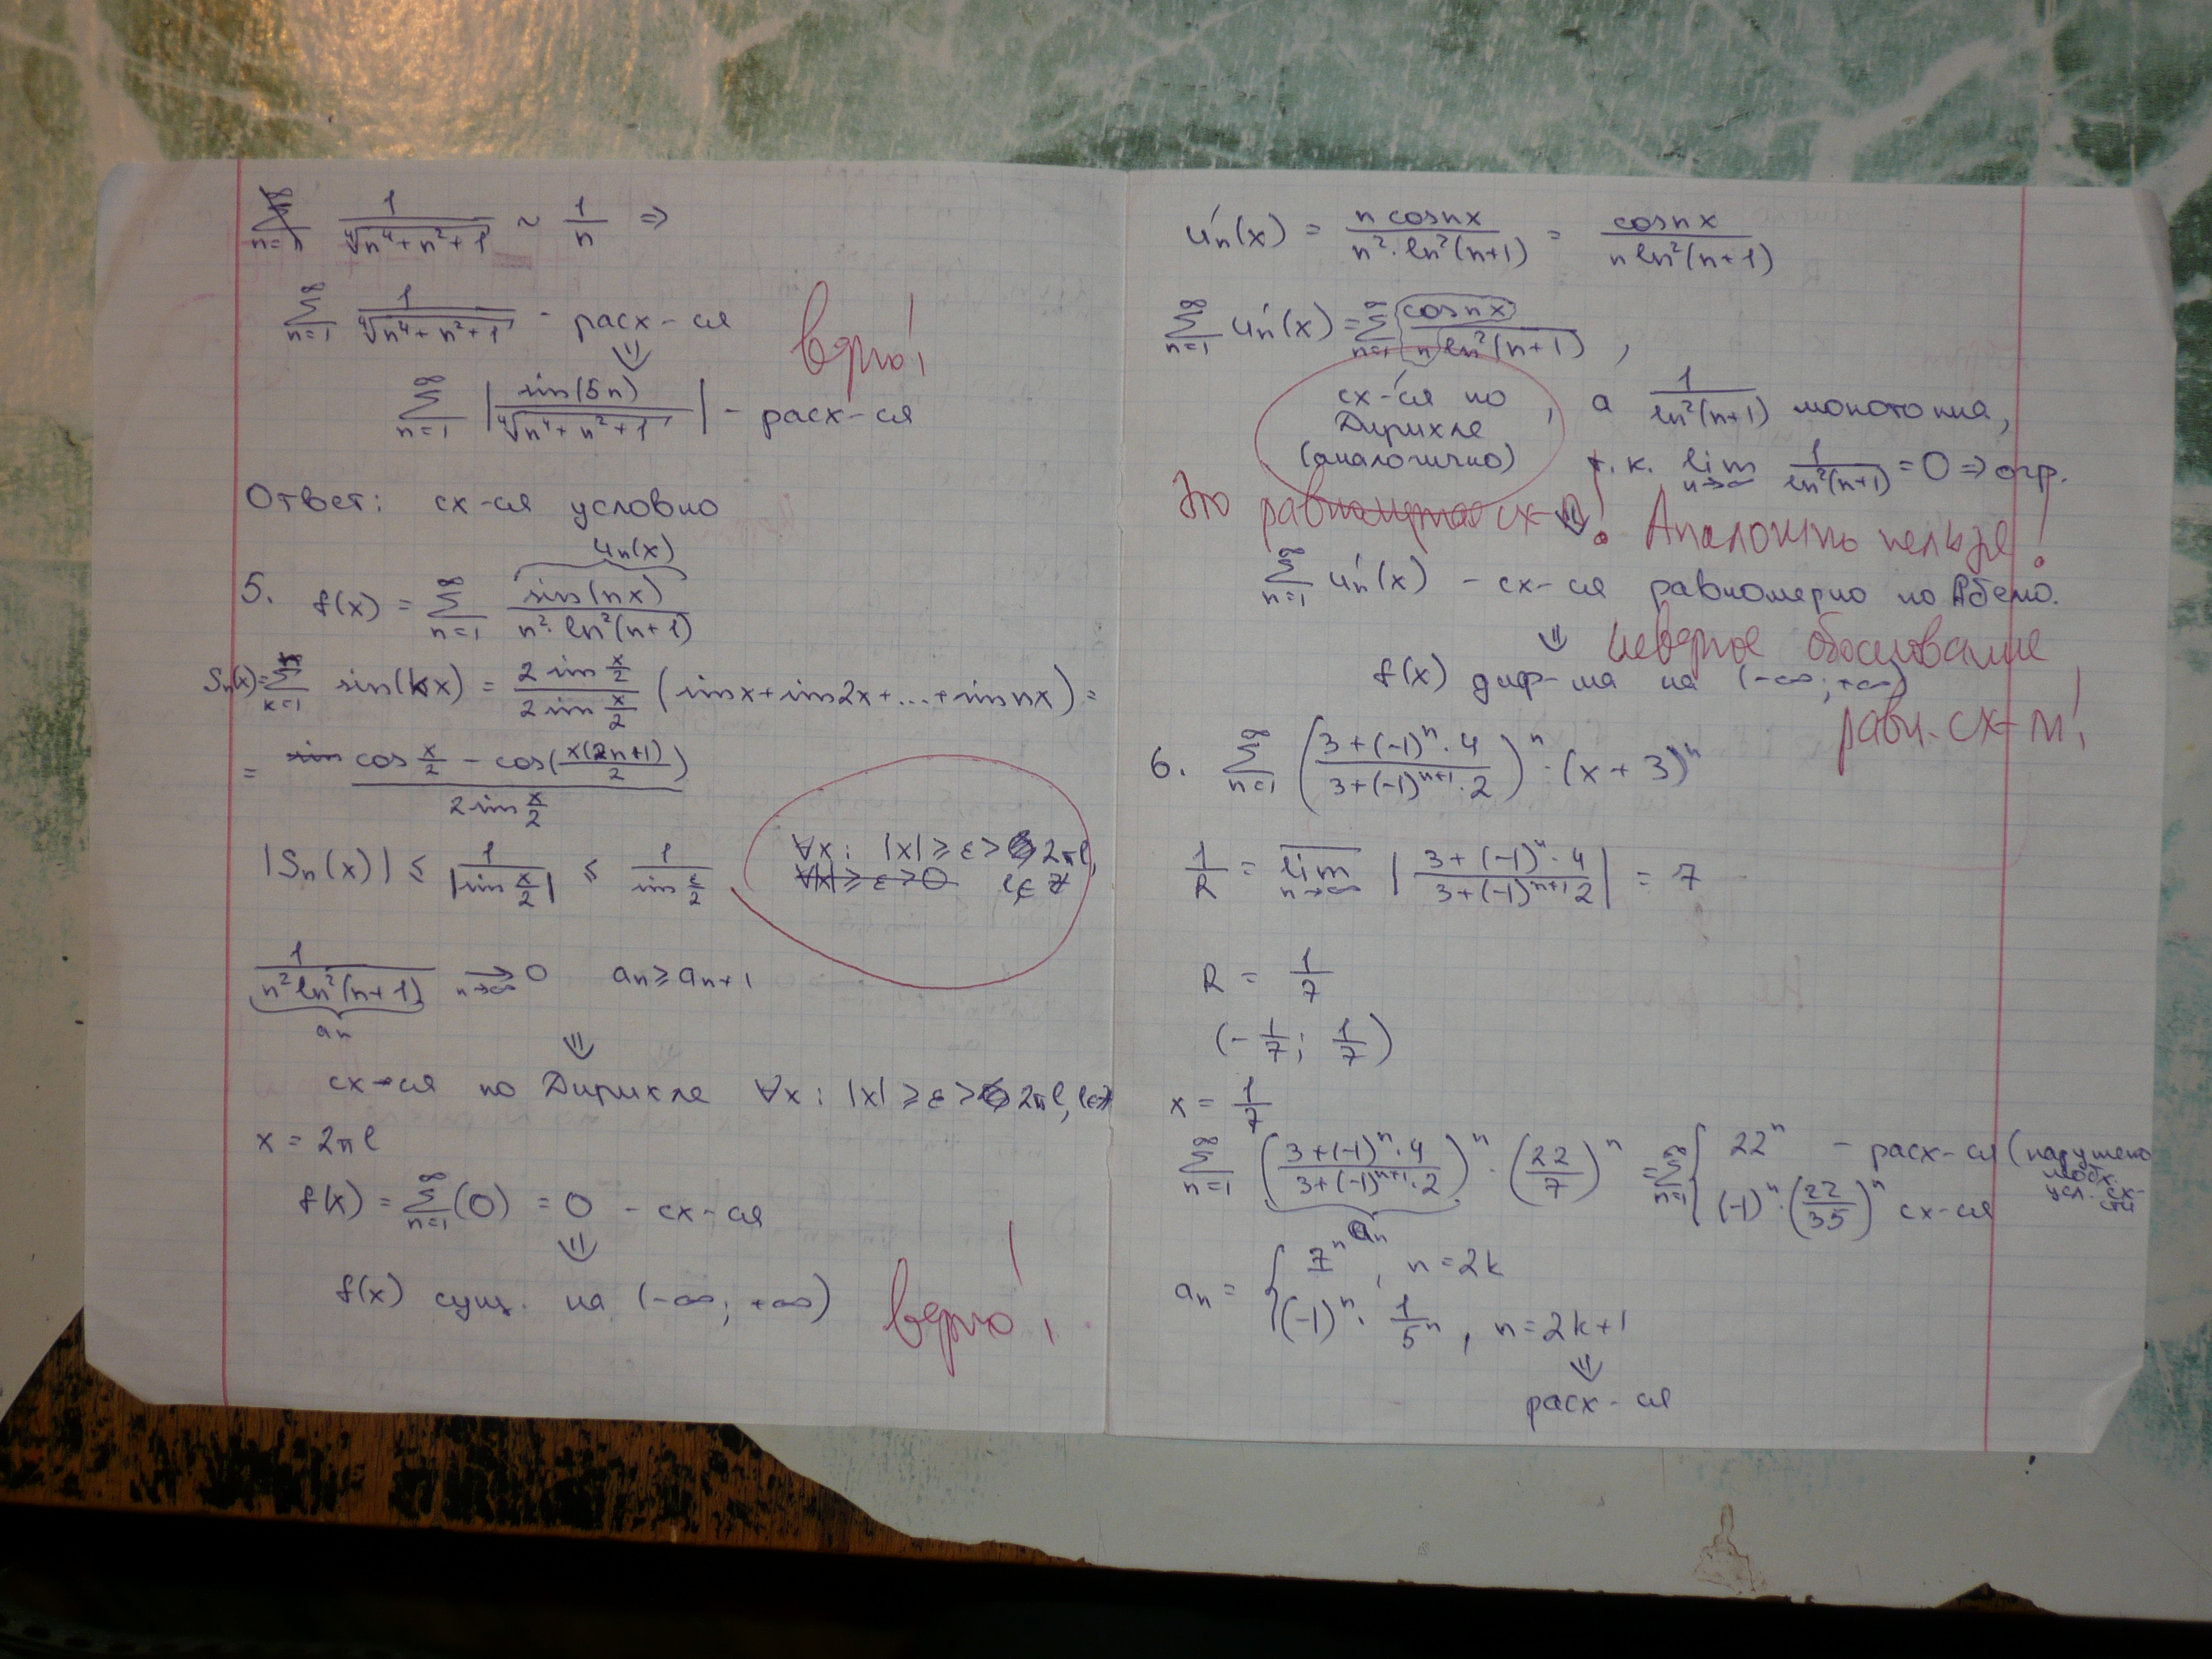 ∑_{n=1}^∞ 1/∜(n⁴+n²+1) ~ 1/n ⇒
∑_{n=1}^∞ 1/∜(n⁴+n²+1) - расх-ся
⇓
∑_{n=1}^∞ |sin(5n)/∜(n⁴+n²+1)| - расх-ся
верно!
Ответ: сх-ся условно
u_n(x)
5. f(x) = ∑_{n=1}^∞ sin(nx)/(n²·ln²(n+1))
S_n(x)=∑_{k=1}^n sin(kx) = (2 sin x/2)/(2 sin x/2) (sinx+sin2x+...+sin nx) =
= (cos x/2 - cos(x(2n+1)/2))/(2 sin x/2)
|S_n(x)| ≤ 1/|sin x/2| ≤ 1/(sin ε/2)
∀x: |x| ≥ ε > 2πl,
∀|x| ≥ ε > 0 l∈Z
1/(n² ln²(n+1)) →_{n→∞} 0 a_n ≥ a_{n+1}
a_n
⇓
сх-ся по Дирихле ∀x: |x| ≥ ε > 2πl, l∈Z
x = 2πl
f(x) = ∑_{n=1}^∞ (0) = 0 - сх-ся
⇓
f(x) сущ. на (-∞; +∞)
верно!
u'_n(x) = (n cosnx)/(n²·ln²(n+1)) = cosnx/(n ln²(n+1))
∑_{n=1}^∞ u'_n(x) = ∑_{n=1}^∞ cosnx/(n ln²(n+1)),
сх-ся по Дирихле (аналогично), а 1/ln²(n+1) монотонна,
т.к. lim_{n→∞} 1/ln²(n+1) = 0 ⇒ огр.
Это равномерная сх-ть! Аналогить нельзя!
⇓
∑_{n=1}^∞ u'_n(x) - сх-ся равномерно по Абелю.
⇓ неверное обоснование
f(x) диф-ма на (-∞; +∞)
равн. сх-ти!
6. ∑_{n=1}^∞ ((3+(-1)ⁿ·4)/(3+(-1)ⁿ⁺¹·2))ⁿ · (x+3)ⁿ
1/R = lim̅_{n→∞} |(3+(-1)ⁿ·4)/(3+(-1)ⁿ⁺¹2)| = 7
R = 1/7
(-1/7; 1/7)
x = 1/7
∑_{n=1}^∞ ((3+(-1)ⁿ·4)/(3+(-1)ⁿ⁺¹·2))ⁿ · (22/7)ⁿ = ∑_{n=1}^∞ { 22ⁿ - расх-ся (нарушено необх. усл. сх-сти
(-1)ⁿ·(22/35)ⁿ сх-ся
a_n
a_n = { 7ⁿ, n=2k
(-1)ⁿ · 1/5ⁿ, n=2k+1
⇓
расх-ся